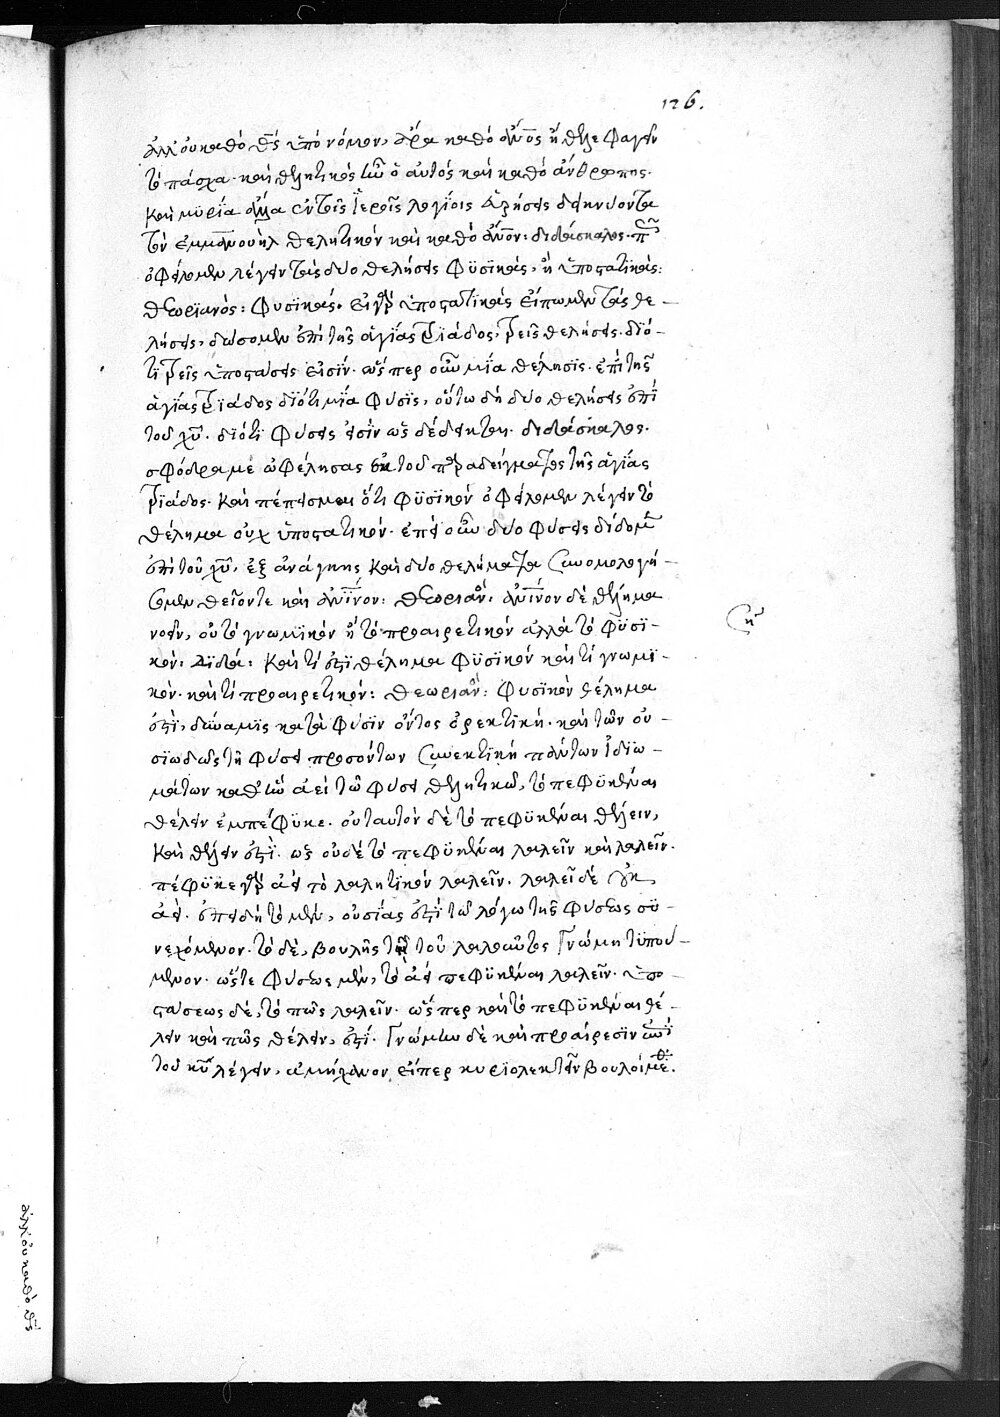 126.
ἀλλ' οὐ καθὸ θς ὑπὸ νόμον, ἄρα καθὸ ἄνος ἤθελε φαγεῖν
τὸ πάσχα· καὶ θελητικὸς ἦν ὁ αὐτὸς καὶ καθὸ ἄνθρωπος.
καὶ μυρία ἄλλα ἐν τοῖς ἱεροῖς λογίοις δεικνύοντα
τὸν ἐμμανουὴλ θελητικὸν καὶ καθὸ ἄνον: διδάσκαλος·
ὀφείλομεν λέγειν τὰς δύο θελήσεις φυσικὰς, ἢ ὑποστατικάς:
θεωριανός: φυσικάς. εἰ γὰρ ὑποστατικὰς εἴπωμεν τὰς θε-
λήσεις, δώσομεν ἐπὶ τῆς ἁγίας τριάδος, τρεῖς θελήσεις. διό-
τι τρεῖς ὑποστάσεις εἰσίν. ὥσπερ οὖν μία θέλησις. ἐπὶ τῆς
ἁγίας τριάδος διότι μία φύσις, οὕτω δὴ δύο θελήσεις ἐπὶ
τοῦ χυ. διότι φύσεις εἰσὶν ὡς δέδεικται. διδάσκαλος.
σφόδρα με ὠφέλησας ἐκ τοῦ παραδείγματος τῆς ἁγίας
τριάδος. καὶ πέπεισμαι ὅτι φυσικὸν ὀφείλομεν λέγειν τὸ
θέλημα οὐχ ὑποστατικόν. ἐπεὶ οὖν δύο φύσεις δίδομεν
ἐπὶ τοῦ χυ, ἐξ ἀνάγκης καὶ δύο θελήματα συνομολογή-
σωμεν θεῖόν τε καὶ ἀνινον: θεωριαν: ἀνινον δὲ θέλημα
νοεῖν, οὐ τὸ γνωμικὸν ἢ τὸ προαιρετικὸν ἀλλὰ τὸ φυσι-
κόν: διδά: καὶ τί ἐστι θέλημα φυσικὸν καὶ τί γνωμι-
κόν. καὶ τί προαιρετικόν: θεωριαν: φυσικὸν θέλημα
ἐστι, δύναμις κατὰ φύσιν ὄντος ὀρεκτική. καὶ τῶν οὐ-
σιωδῶς τῇ φύσει προσόντων συνεκτικὴ πάντων ἰδιω-
μάτων καθ' ἣν ἀεὶ τῷ φύσει θελητικῷ, τὸ πεφυκέναι
θέλειν ἐμπέφυκε. οὐ ταυτὸν δὲ τὸ πεφυκέναι θέλειν,
καὶ θέλειν ἐστι. ὡς οὐδὲ τὸ πεφυκέναι λαλεῖν καὶ λαλεῖν.
πέφυκε γὰρ ἀεὶ τὸ λαλητικὸν λαλεῖν. λαλεῖ δὲ οὐκ
ἀεί. ἐπειδὴ τὸ μὲν, οὐσίας ἐστὶ τῷ λόγῳ τῆς φύσεως συ-
νεχόμενον. τὸ δὲ, βουλῆς τῇ τοῦ λαλοῦντος γνώμῃ τυπού-
μενον. ὥστε φύσεως μὲν, τὸ ἀεὶ πεφυκέναι λαλεῖν. ὑπο-
στάσεως δὲ, τὸ πῶς λαλεῖν. ὥσπερ καὶ τὸ πεφυκέναι θέ-
λειν καὶ πῶς θέλειν, ἐστί. γνώμην δὲ καὶ προαίρεσιν ἐπὶ
τοῦ κυ λέγειν, ἀμήχανον εἴπερ κυριολεκτεῖν βουλοίμεθα.
ἀλλ' οὐ καθὸ θς